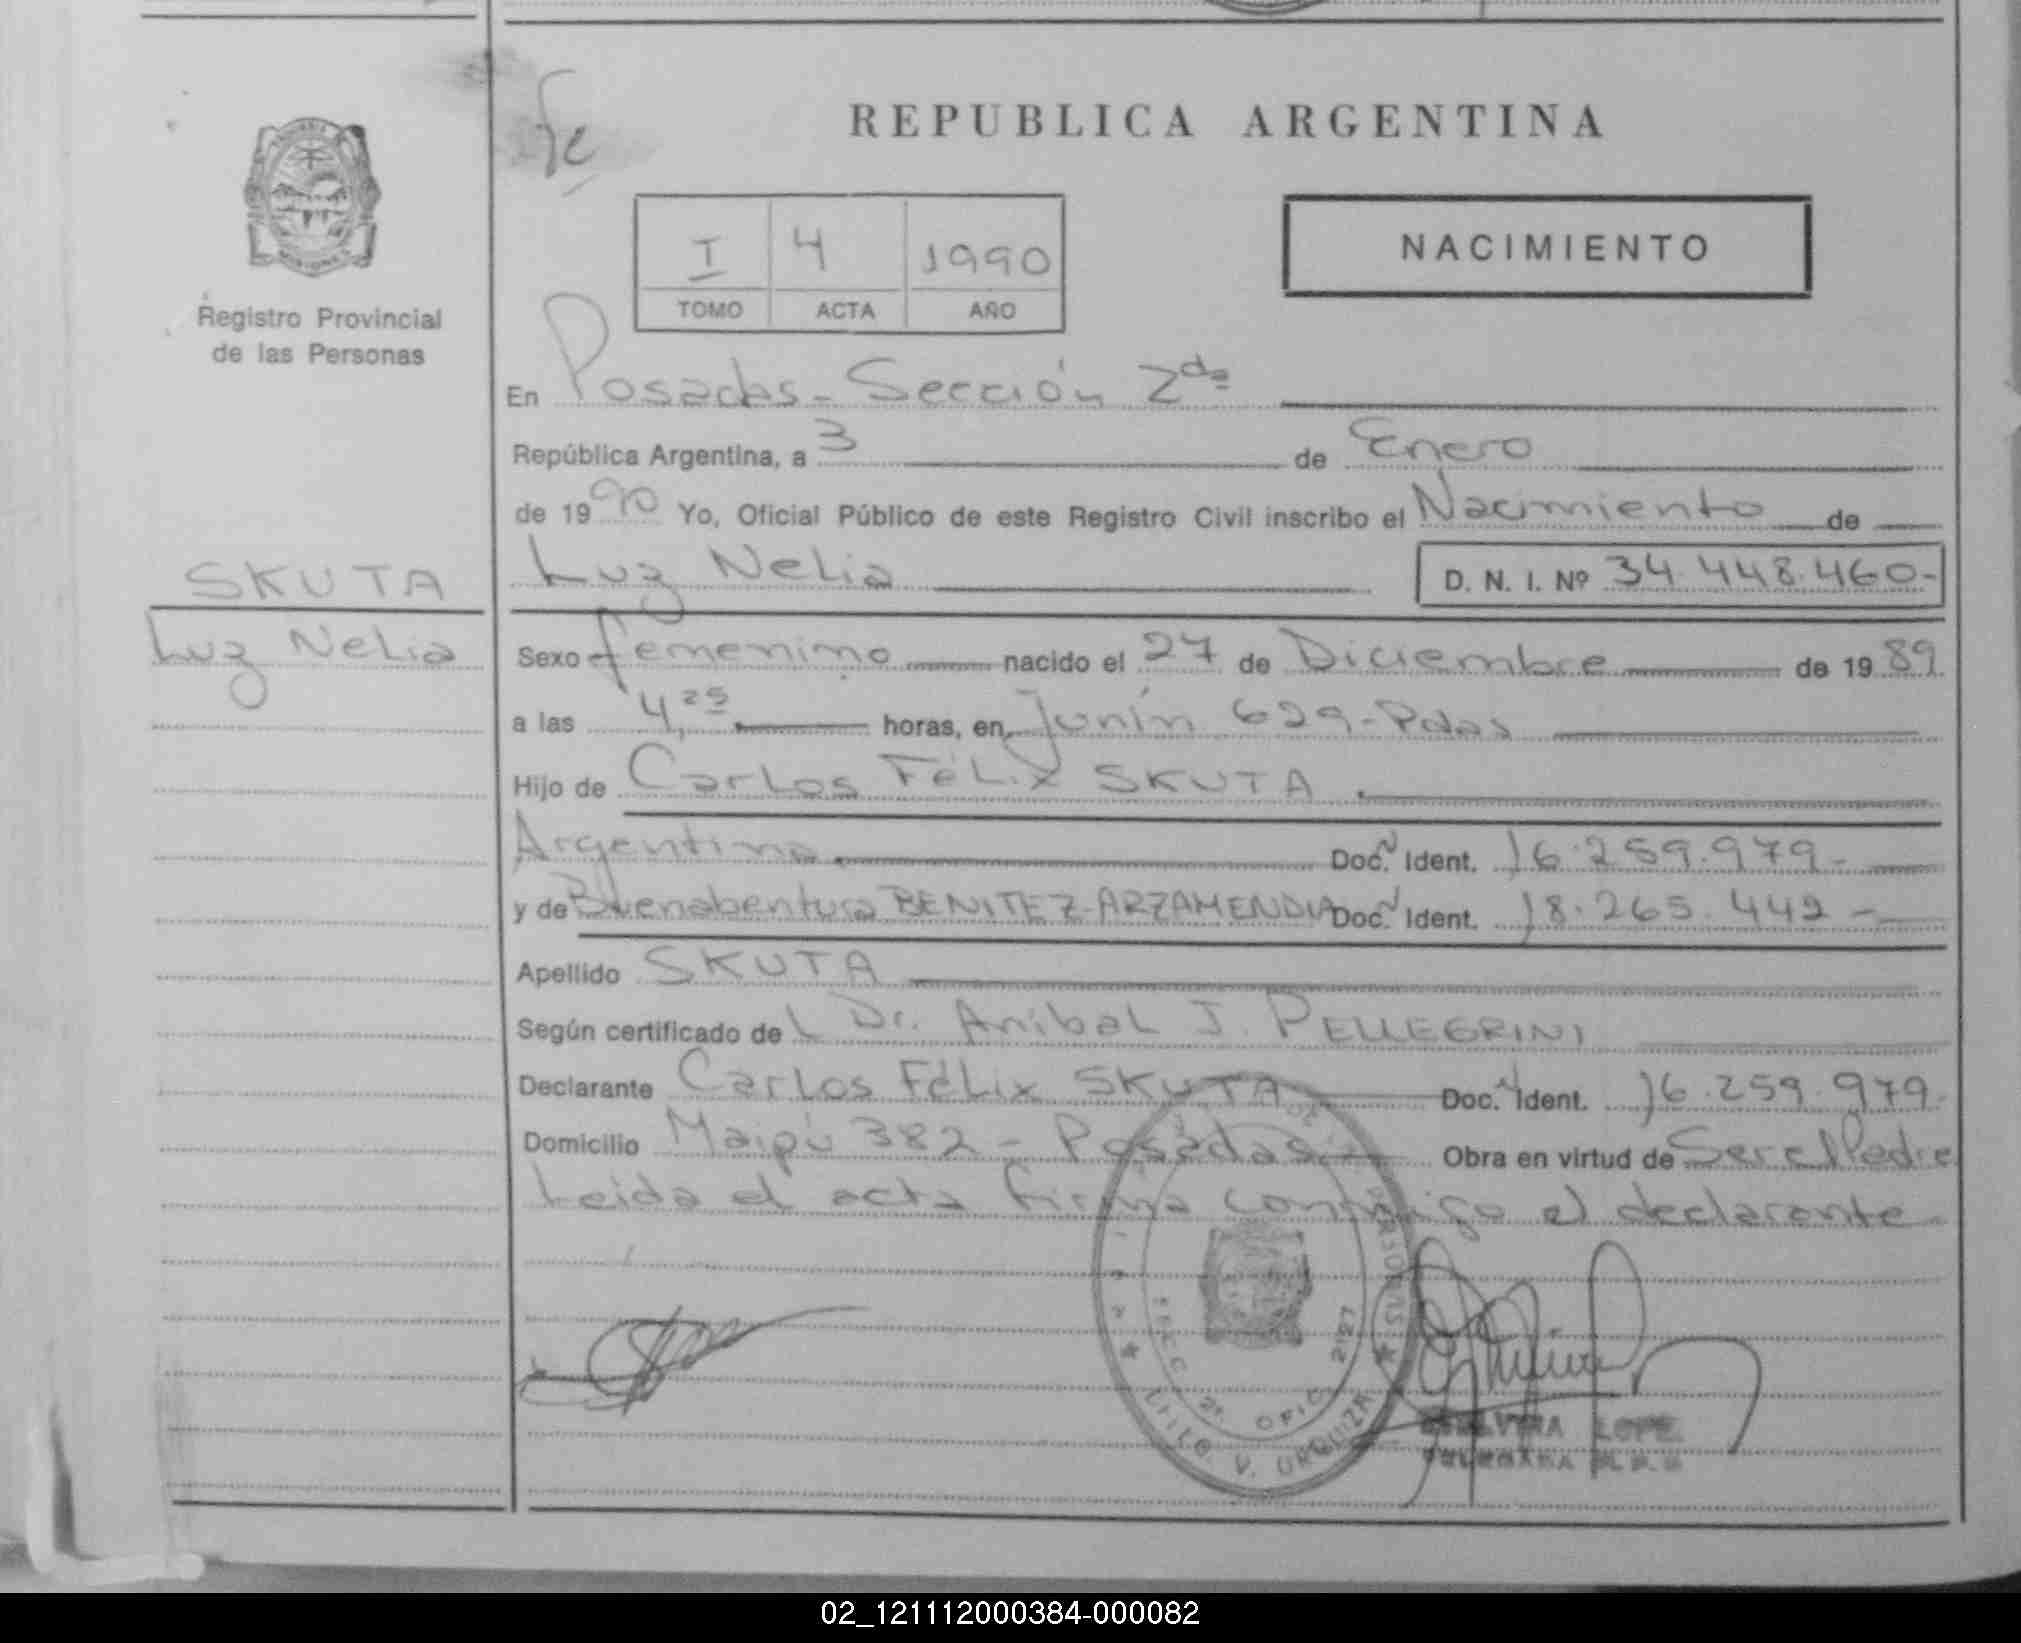 REPUBLICA ARGENTINA
I 4 1990
TOMO ACTA AÑO
NACIMIENTO
Registro Provincial
de las Personas
En Posadas - Sección 2da
República Argentina, a 3 de Enero
de 1990 Yo, Oficial Público de este Registro Civil inscribo el Nacimiento de
Luz Nelia D. N. I. Nº 34.448.460-
SKUTA
Luz Nelia
Sexo femenino nacido el 27 de Diciembre de 1989
a las 4,25 horas, en Junín 629-Pdas
Hijo de Carlos Félix SKUTA
Argentino Doc. N Ident. 16.259.979-
y de Buenabentura BENITEZ-ARZAMENDIA Doc. N Ident. 18.265.442-
Apellido SKUTA
Según certificado de L Dr. Anibal J. PELLEGRINI
Declarante Carlos Félix SKUTA Doc. N Ident. 16.259.979-
Domicilio Maipú 382 - Posadas Obra en virtud de Ser el Padre
Leida el acta firma conmigo el declarante
OFIC. 2127
V. URQUIZA
02_121112000384-000082